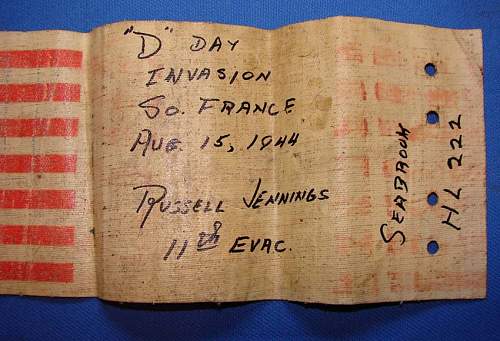 "D" DAY
INVASION
SO. FRANCE
AUG. 15, 1944
RUSSELL JENNINGS
11th EVAC.
SEABROOK
HL 222